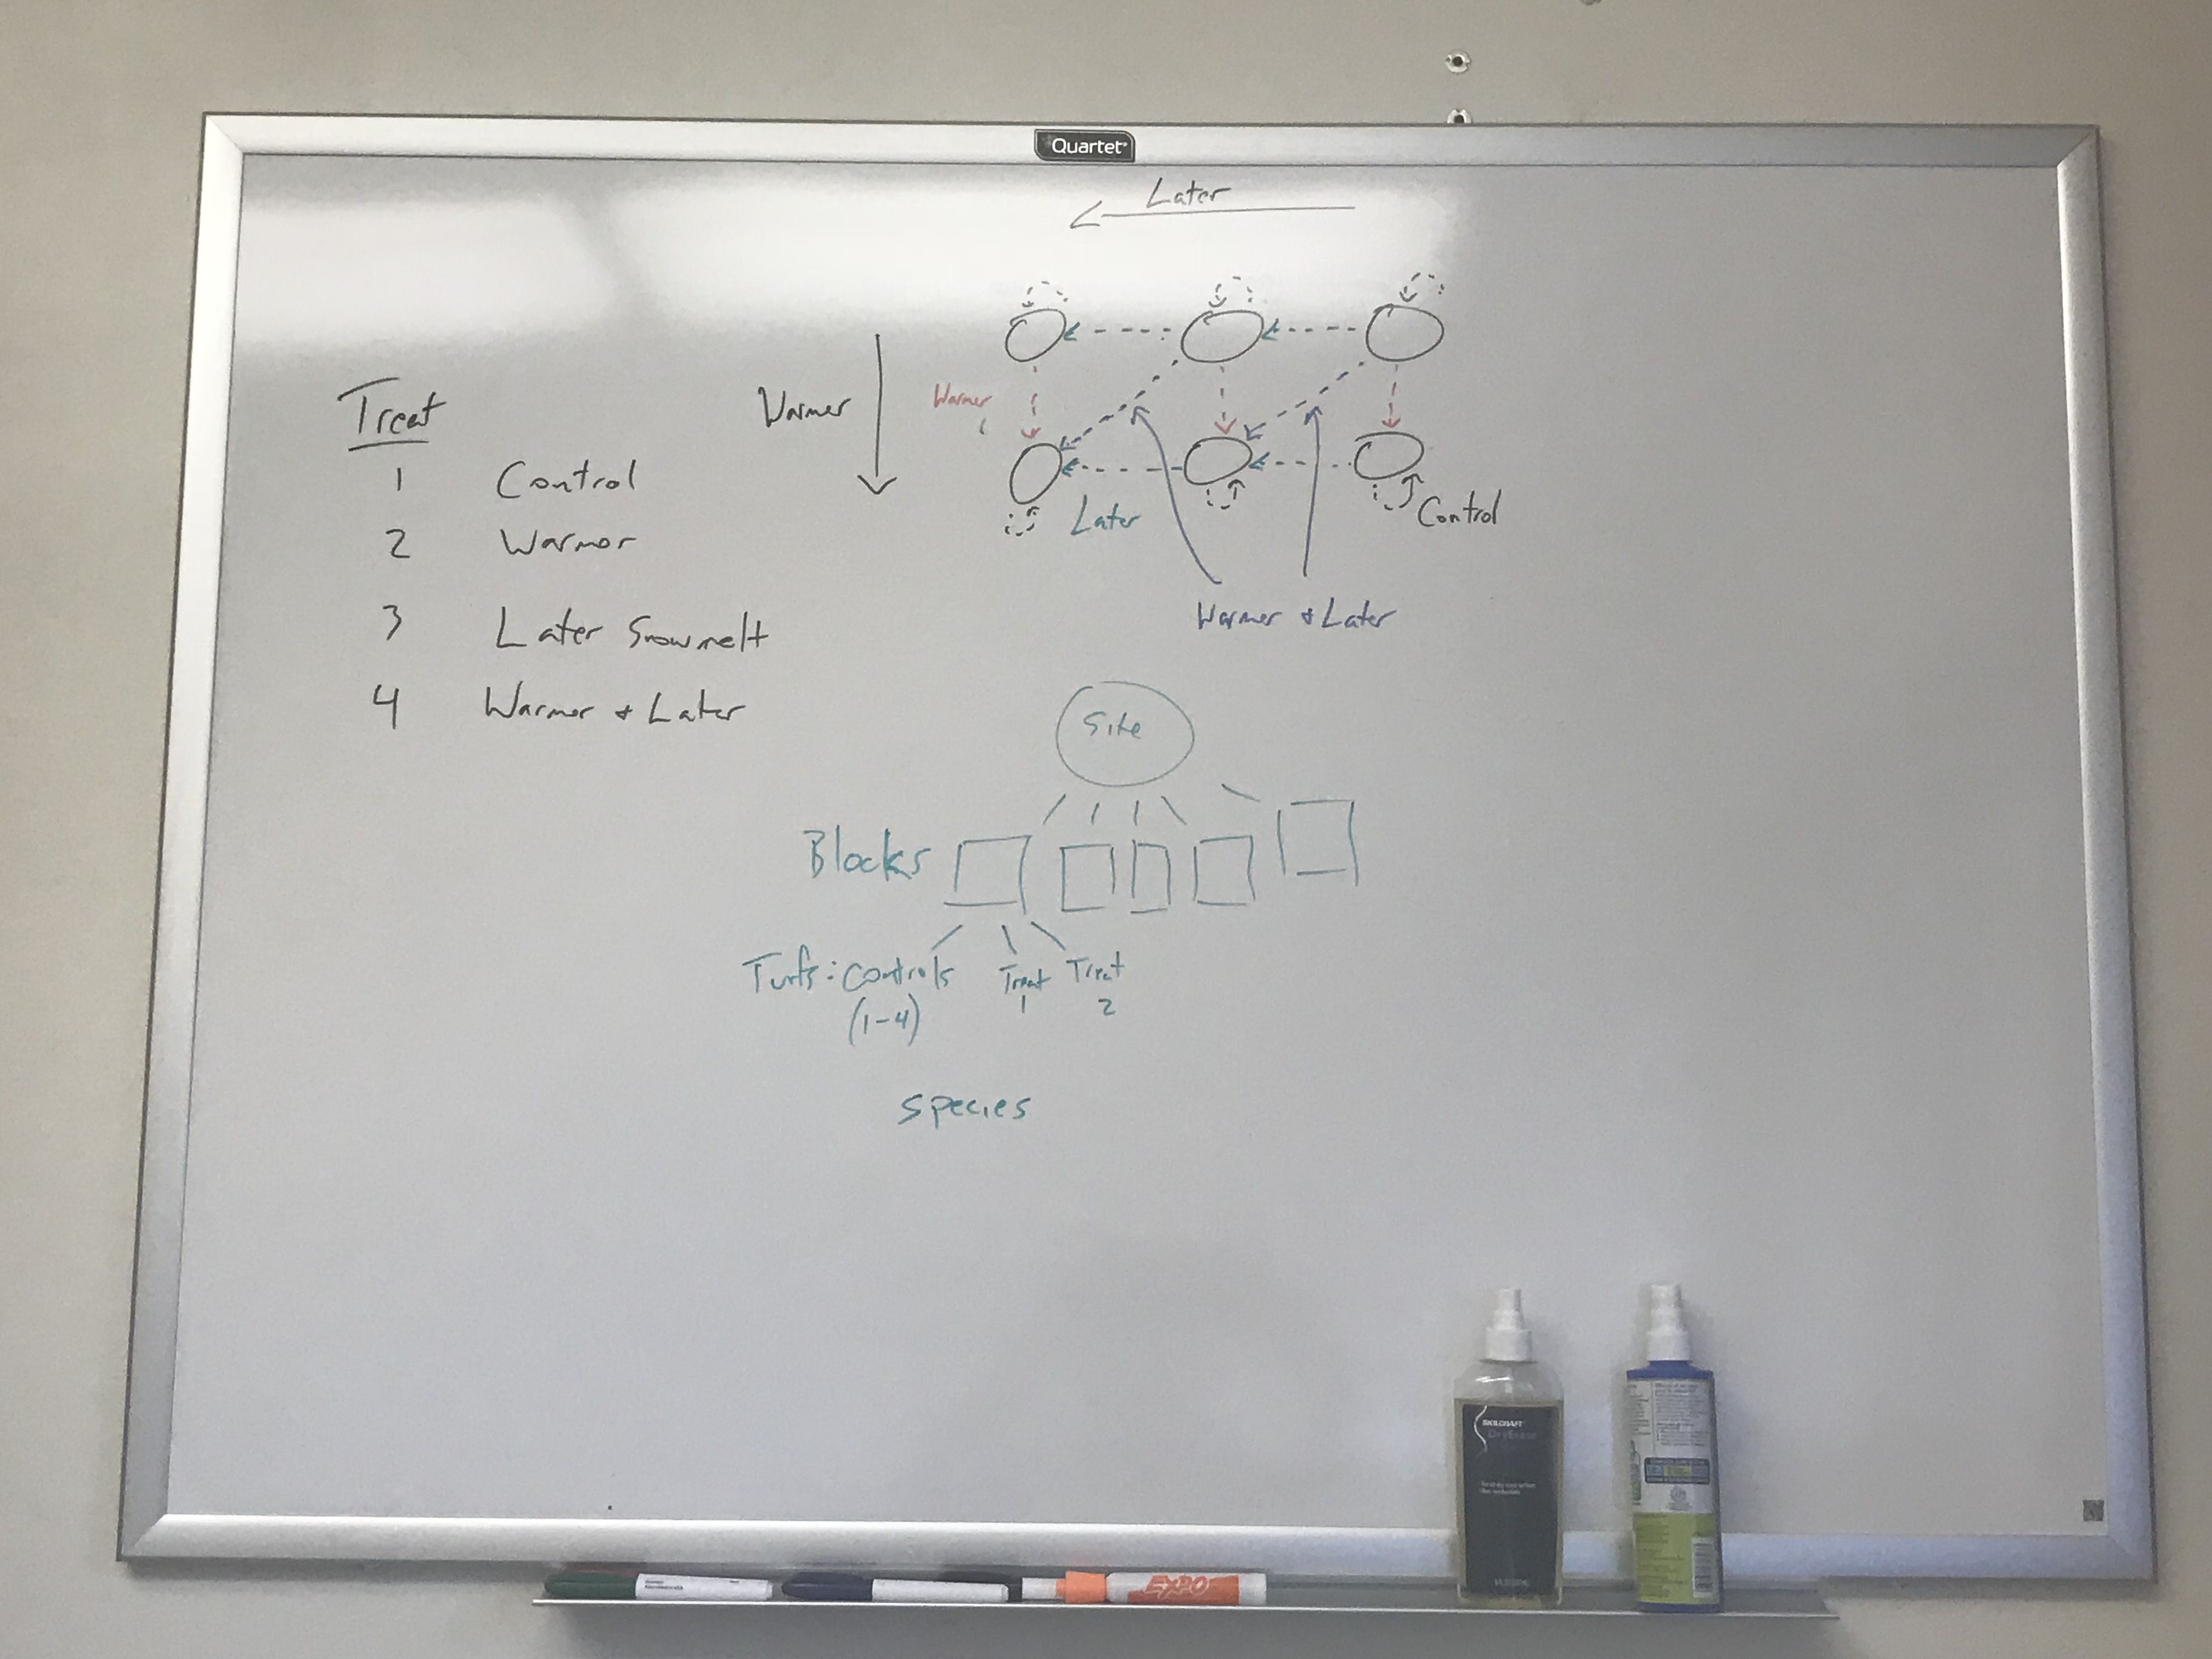 Quartet
Later
Treat
1 Control
2 Warmer
3 Later Snowmelt
4 Warmer + Later
Warmer
Warmer
Later
Control
Warmer + Later
Site
Blocks
Turfs: Controls
(1-4)
Treat
1
Treat
2
Species
SKILCRAFT
DryErase
EXPO